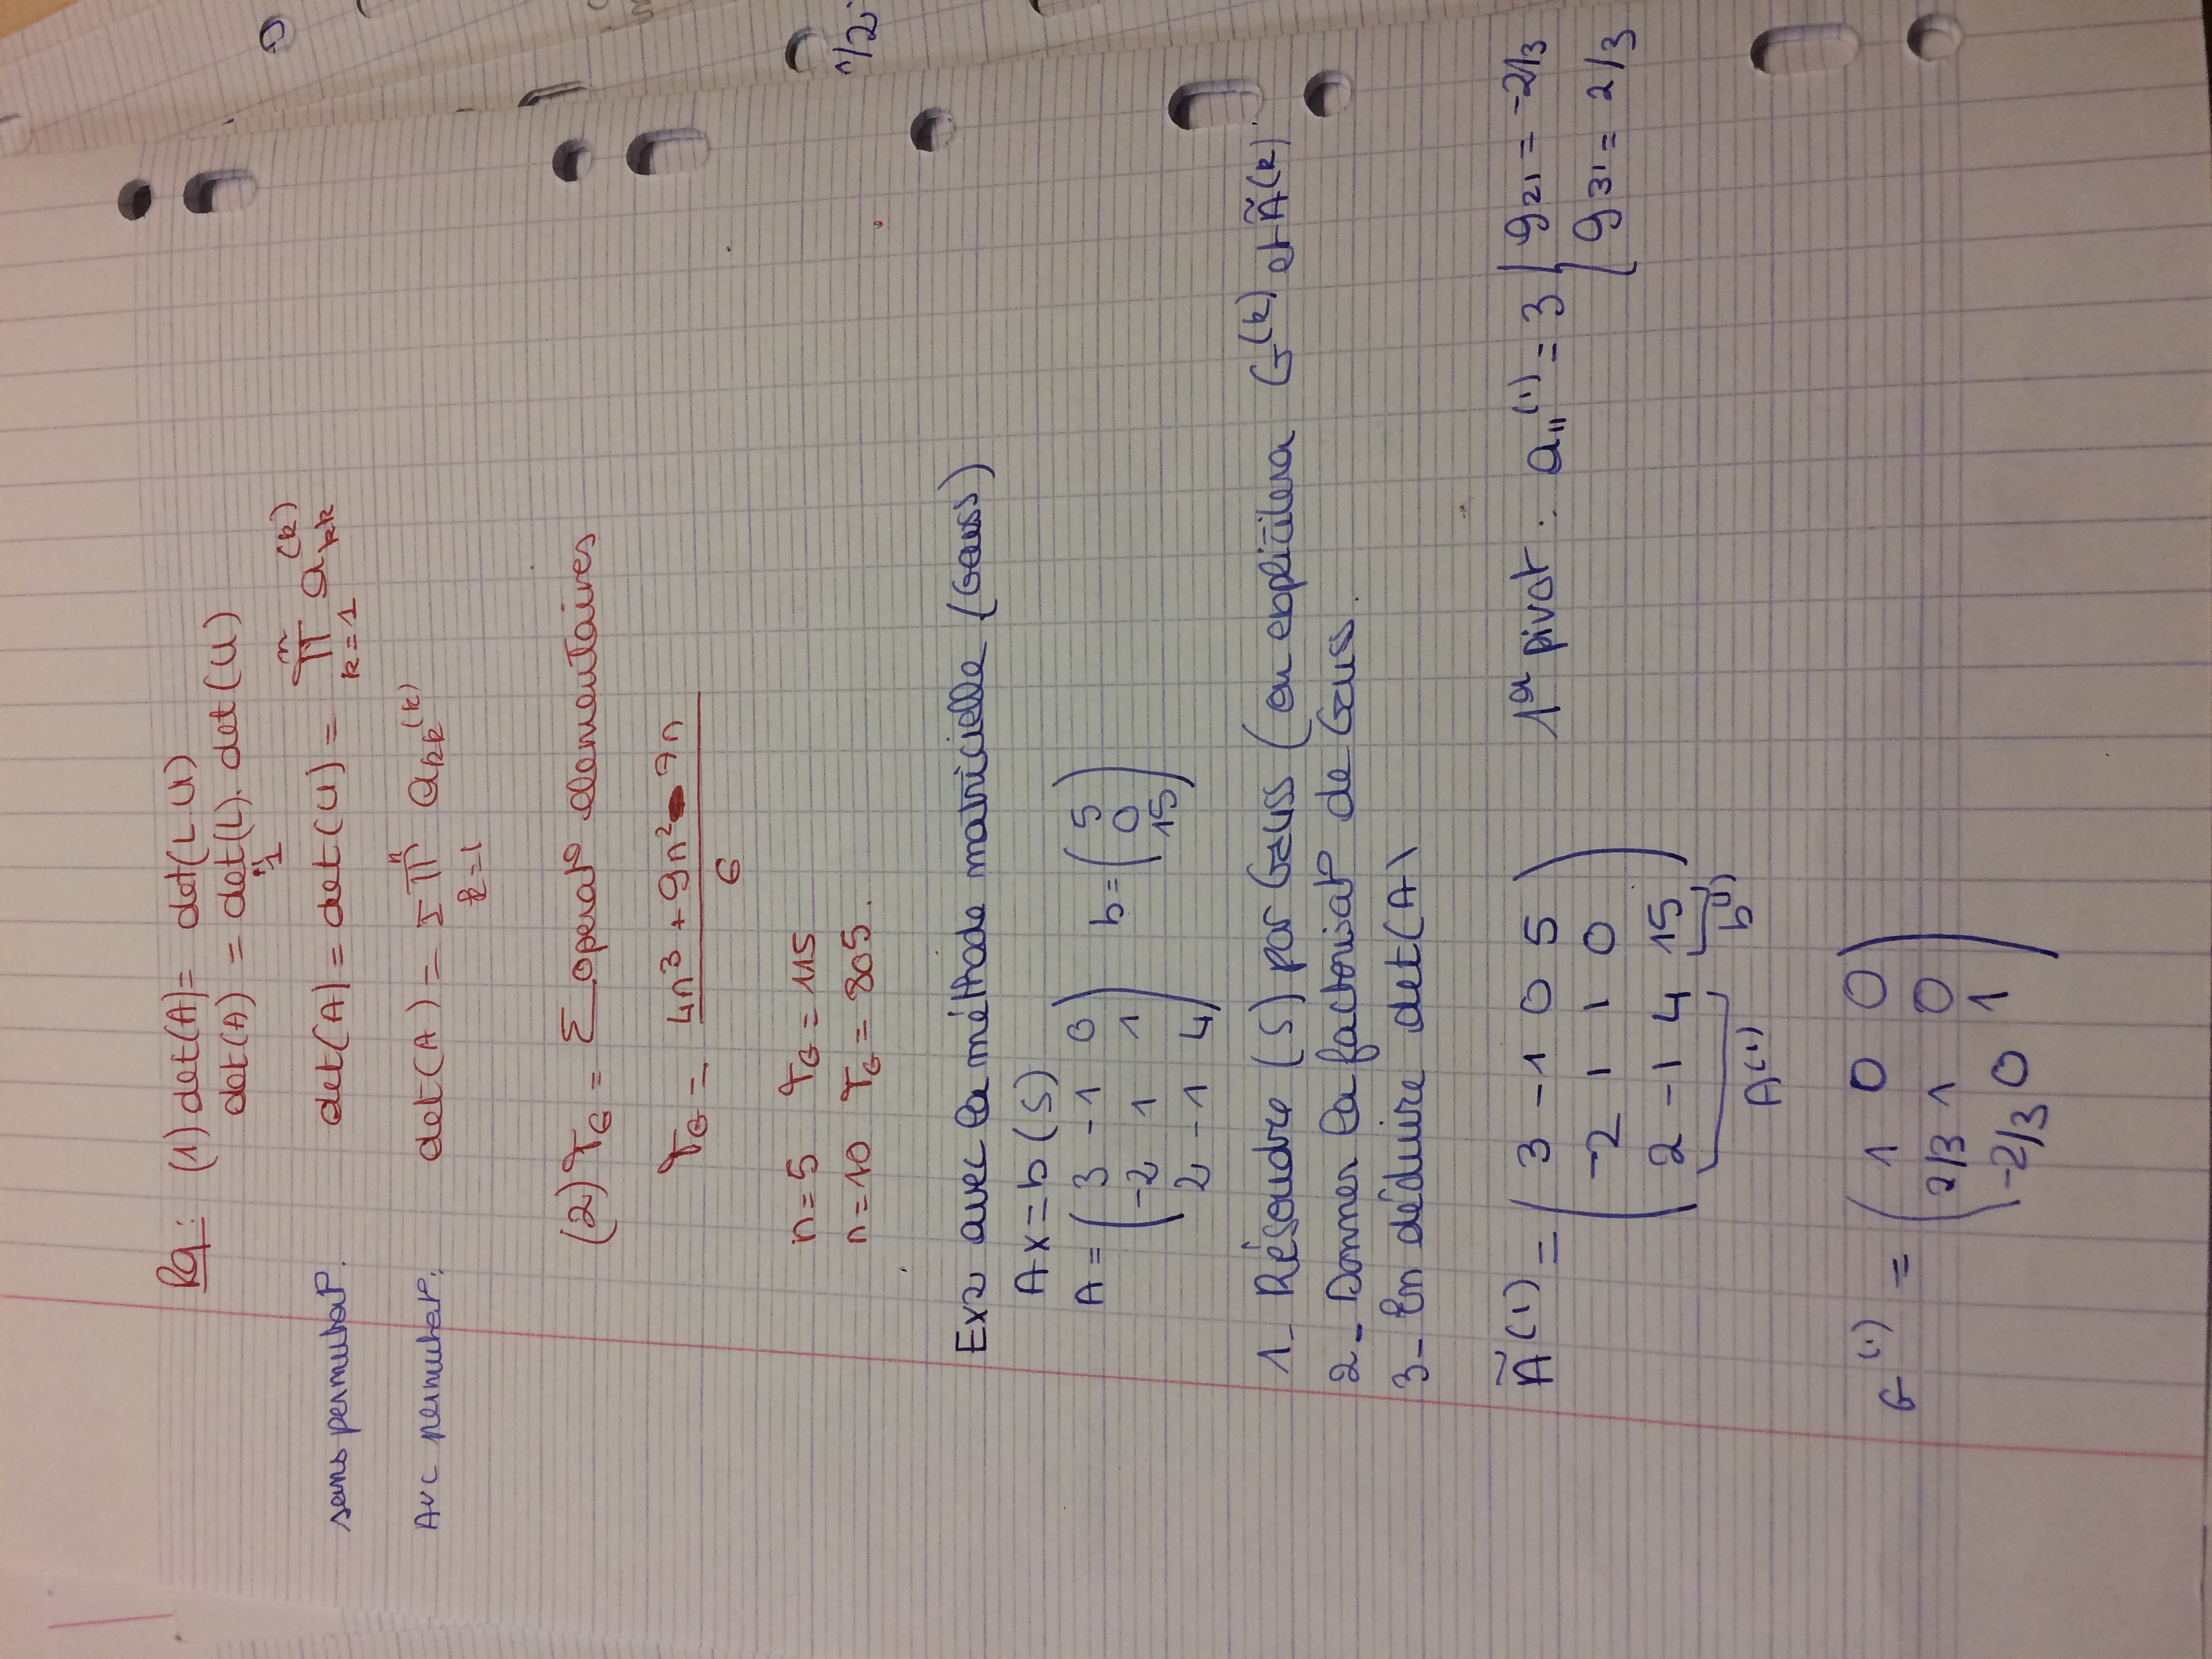 Rq : (1) det(A) = det(L U)
det(A) = det(L). det(U)
"1
sans permutat°. det(A) = det(U) = n∏k=1 a kk (k)
Avc permutat°: det(A) = ± n∏k=1 a kk (k)
(2) τG = Σ operat° elementaires
τG = 4n³ + 9n² - 7n / 6
n = 5 τG = 115
n = 10 τG = 805.
Ex2 avec la méthode matricielle (Gauss)
Ax = b (S)
A = ( 3 -1 0 b = ( 5
-2 1 1 0
2 -1 4 ) 15 )
1_ Résoudre (S) par Gauss (on explicitera G^(k) et Ã^(k)
2_ Donner la factorisat° de Gauss.
3_ En déduire det(A)
Ã^(1) = ( 3 -1 0 5 ) 1er pivot : a11^(1) = 3 { g21 = -2/3
-2 1 1 0 g31 = 2/3
2 -1 4 15
A^(1) b^(1)
G^(1) = ( 1 0 0
2/3 1 0
-2/3 0 1 )
1/2